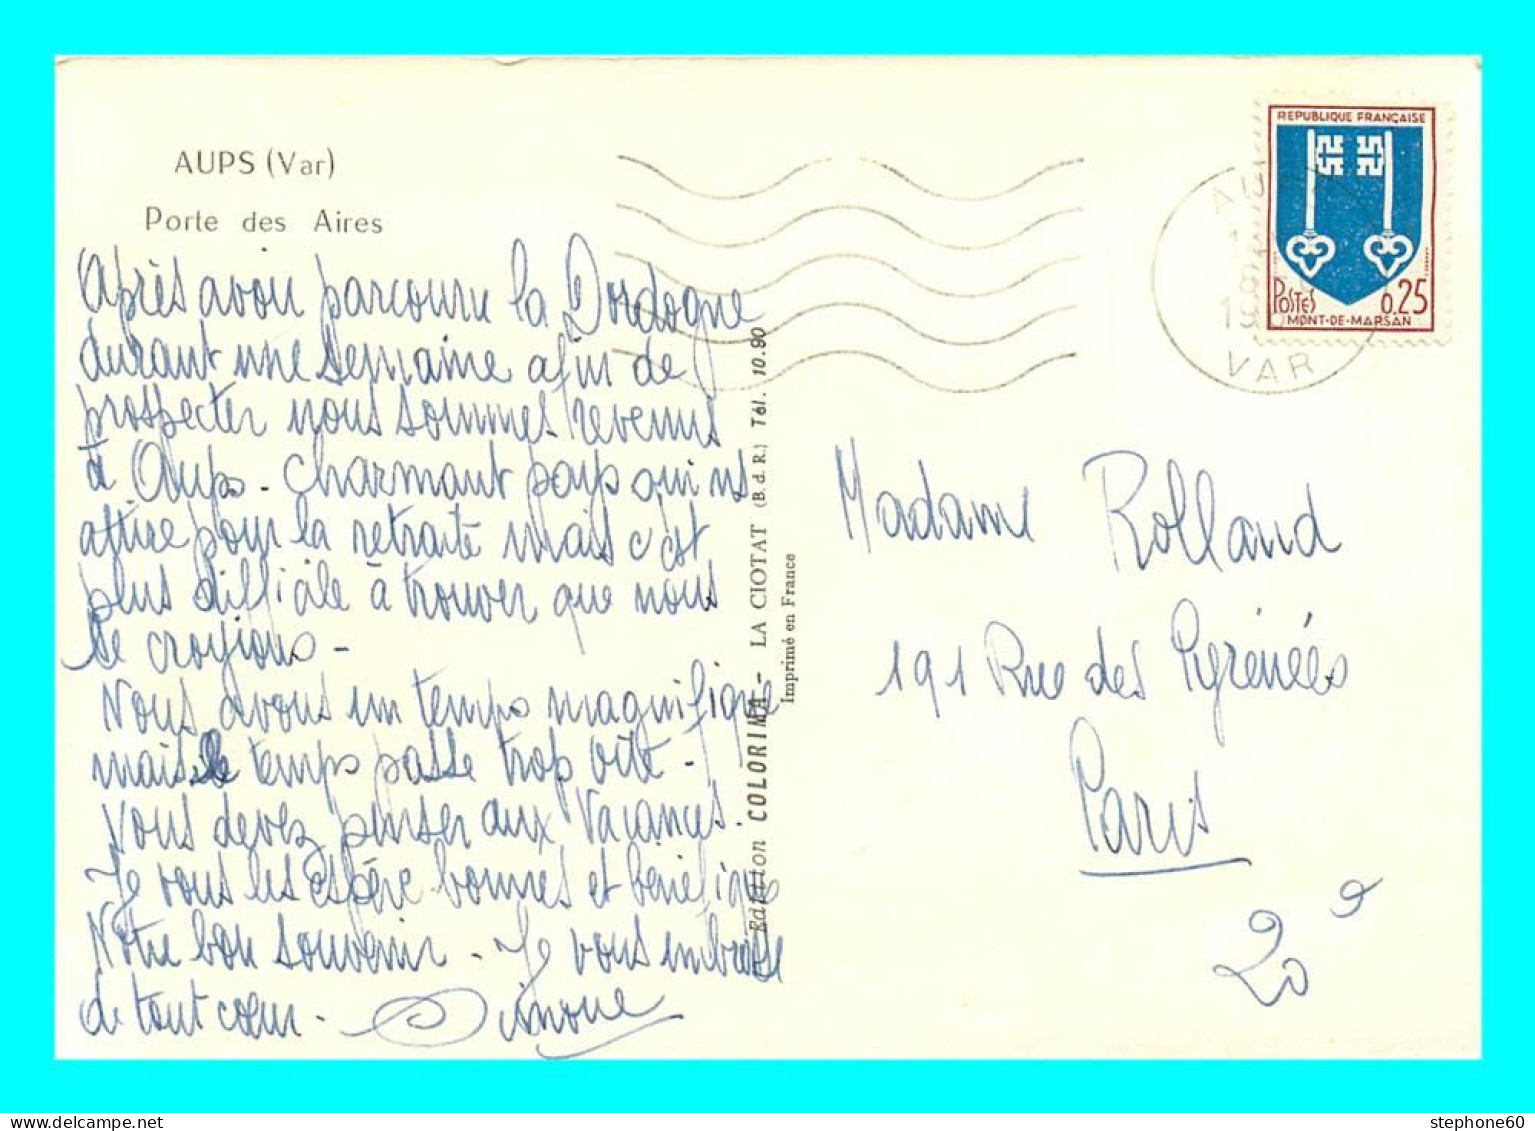 AUPS (Var)
Porte des Aires
Après avoir parcouru la Dordogne
durant une semaine afin de
prospecter nous sommes revenus
à Aups - Charmant pays qui ns
attire pour la retraite mais c'est
plus difficile à trouver que nous
le croyions -
Nous avons un temps magnifique
mais le temps passe trop vite -
Vous devez penser aux Vacances.
Je vous les espère bonnes et bénéfique
Notre bon souvenir - Je vous embrasse
de tout cœur - Simone
Edition COLORIMA - LA CIOTAT (B.d.R.) Tél. 10.90
Imprimé en France
REPUBLIQUE FRANÇAISE
POSTES 0,25
MONT-DE-MARSAN
VAR
Madame Rolland
191 Rue des Pyrénées
Paris
20e
stephone60